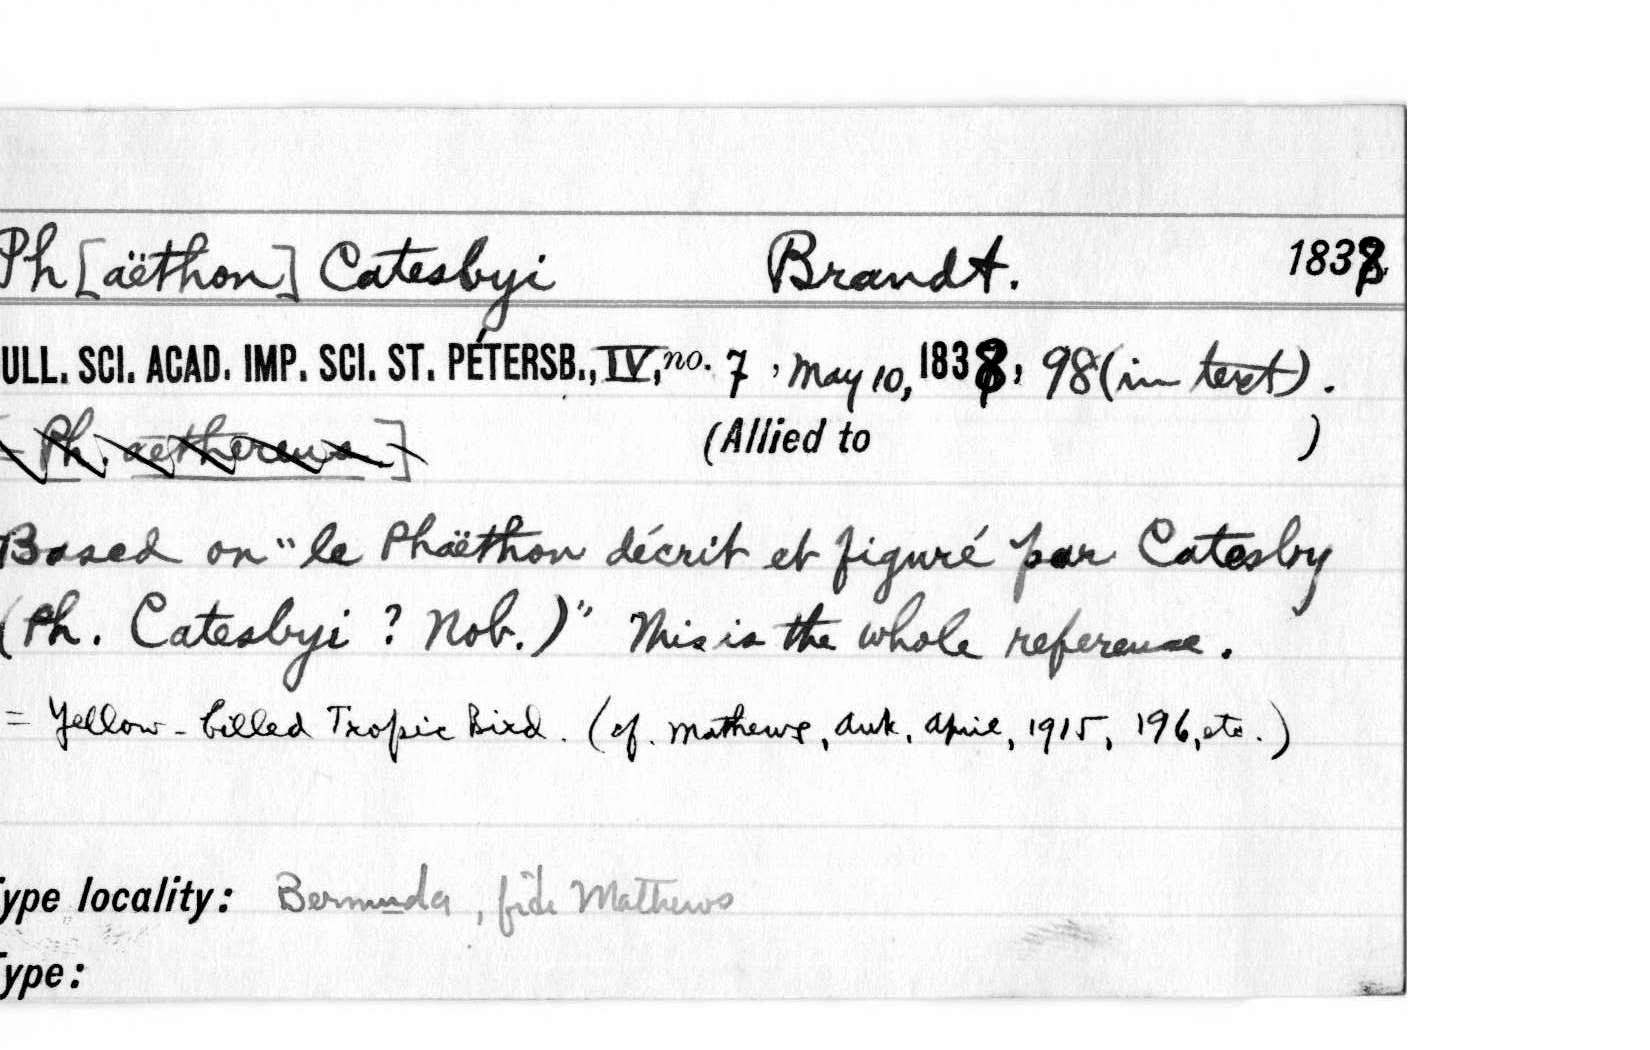 Ph[aëthon] Catesbyi Brandt. 1838.
ULL. SCI. ACAD. IMP. SCI. ST. PÉTERSB., IV, no. 7, May 10, 1838, 98 (in text).
= Ph. aethereus]
(Allied to )
Based on "le Phaëthon décrit et figuré par Catesby
(Ph. Catesbyi ? Nob.)" This is the whole reference.
= Yellow-billed Tropic Bird. (cf. Mathews, Auk, April, 1915, 196, etc.)
ype locality: Bermuda, fide Mathews
ype: